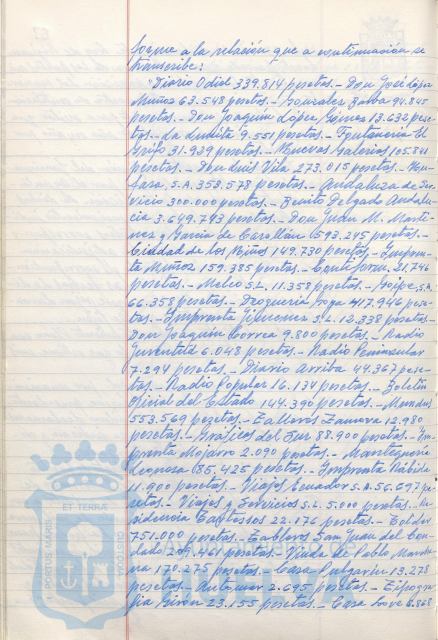 forme a la relación que a continuación se
transcribe:
"Diario Odiel 339.814 pesetas.- Don José López
Muñoz 63.548 pesetas.- González Barba 94.845
pesetas.- Don Joaquín López Gómez 13.632 pese-
tas.- La Lumbre 9.551 pesetas.- Fontanería El
Grifo 31.939 pesetas.- Nuevas Galerías 105.841
pesetas.- Don Luis Vila 273.015 pesetas.-
S.A. 353.578 pesetas.- Andaluza de Ser-
vicio 300.000 pesetas.- Benito Delgado Andalu-
cia 3.649.793 pesetas.- Don Juan M. Martí-
nez y García de Carellán 593.245 pesetas.-
Ciudad de los Niños 149.730 pesetas.- Impren-
ta Muñoz 159.385 pesetas.- 21.746
pesetas.- Melco S.L. 11.358 pesetas.- S.A.
66.358 pesetas.- Droguería Goya 417.946 pese-
tas.- Imprenta Jiménez S.L. 13.338 pesetas.-
Don Joaquín Correa 9.800 pesetas.- Radio
Juventud 6.048 pesetas.- Radio Peninsular
7.294 pesetas.- Diario Arriba 44.367 pese-
tas.- Radio Popular 16.134 pesetas.- Boletín
Oficial del Estado 144.390 pesetas.-
553.569 pesetas.- Talleres Zamora 12.980
pesetas.- Gráficas del Sur 88.900 pesetas.- Im-
prenta Mojarro 2.090 pesetas.- Mantequería
Leonesa 185.425 pesetas.- Imprenta
1.900 pesetas.- Viajes Ecuador S.A. 56.697 pe-
setas.- Viajes y Servicios S.L. 5.000 pesetas.- Re-
sidencia Tartessos 22.176 pesetas.- Toldos
751.000 pesetas.- Tableros San Juan del Con-
dado 209.461 pesetas.- Viuda de Pablo
170.275 pesetas.- Casa Pulgarín 13.278
pesetas.- 2.695 pesetas.- Tipogra-
fía Girón 23.155 pesetas.- Casa 6.868
PORTUS MARIS ET TERRAE CUSTODIA
HUELVA